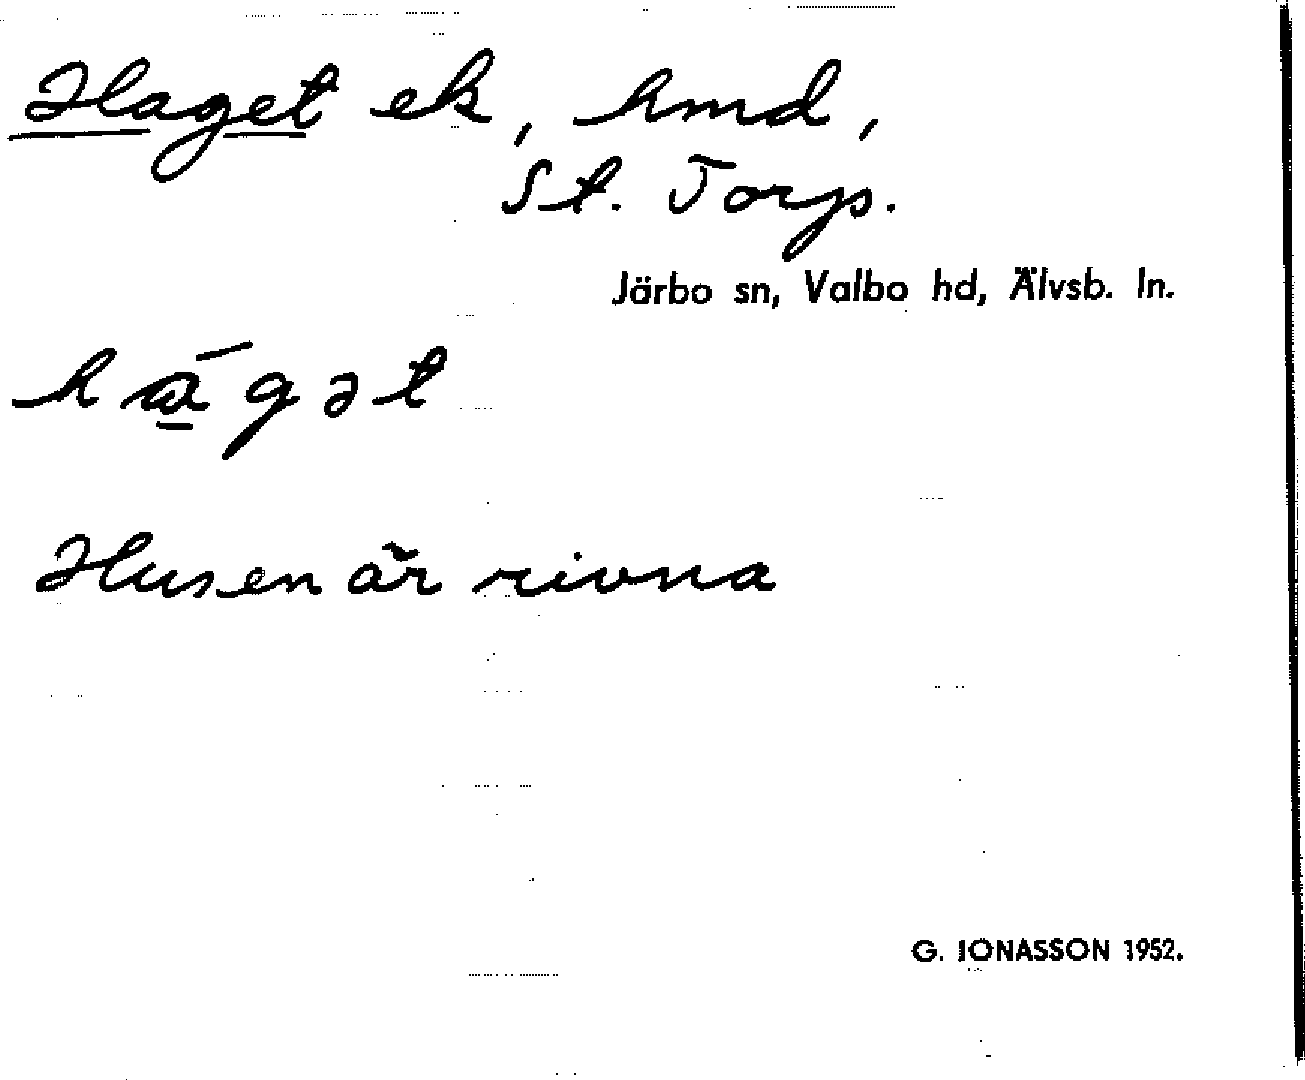 Haget ek, hmd,
St. Torp.
Järbo sn, Valbo hd, Älvsb. ln.
hа̱́gət
Husen är rivna
G. IONASSON 1952.